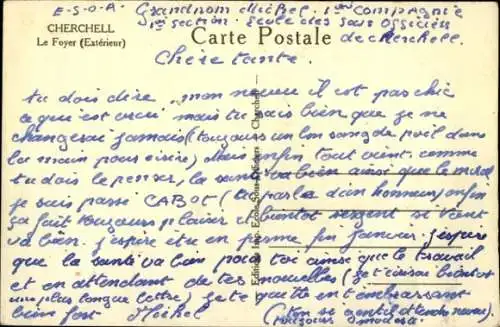 E-S-O-A. Grandnom Michel. 1ère Compagnie
1ère section. Ecole des Sous Officiers
de cherchell.
CHERCHELL
Le Foyer (Extérieur)
Carte Postale
Chère tante.
tu dois dire, mon neveu il est pas chic
ce qui est vrai mais tu sais bien que je ne
changerai jamais (toujours un long de poil dans
la main pour écrire) Mais enfin tout vient. comme
tu dois le penser, la santé va bien ainsi que le moral
je suis passé CABOT (tu parles d'un honneur) enfin
ça fait toujours plaisir et bientôt sergent si tout
va bien. j'espère être en perme fin janvier. j'espère
que la santé va bien pour toi ainsi que le travail
et en attendant de tes nouvelles (je t'écrirai bientôt
une plus longue lettre) je te quitte en t'embrassant
bien fort Michel
(ton si gentil neveu)
toujours modeste.
Edition Imp. Ecole Sous-Officiers Cherchell